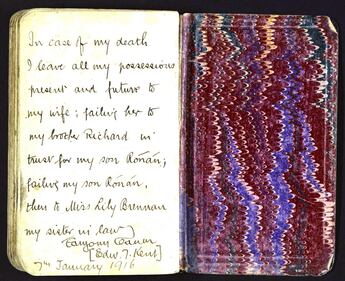 In case of my death
I leave all my possessions
present and future to
my wife; failing her to
my brother Richard in
trust for my son Rónán;
failing my son Rónán,
then to Miss Lily Brennan
my sister in law)
Éamonn Ceannt
[Edw. T. Kent]
7th January 1916